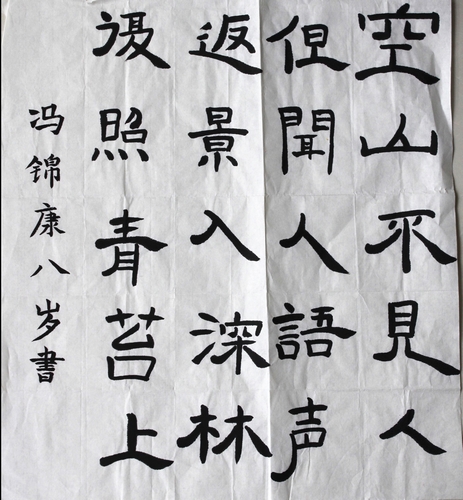 空山不見人
但聞人語声
返景入深林
復照青苔上
冯锦康八岁書